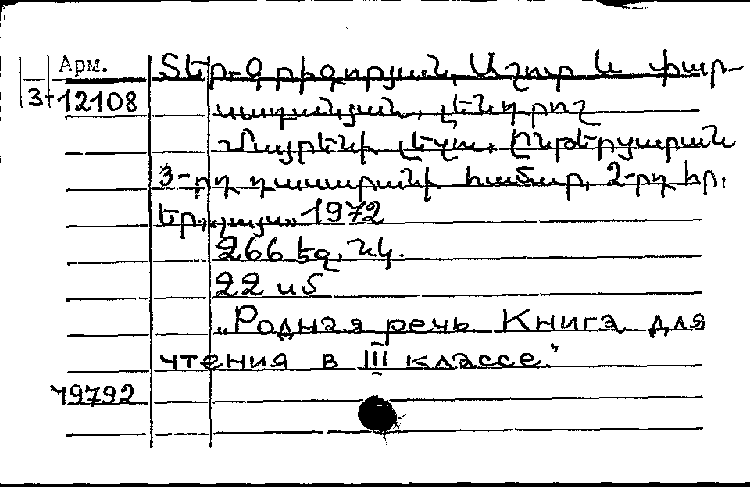 Арм.
3+12108
Տեր-Գրիգորյան, Աշոտ և փար-
սադանյան, լենդրոշ
Մայրենի լեզու, Ընթերցարան
3-րդ դասարանի համար, 2-րդ հր.
Եր., լույս 1972
266 եզ, նկ.
22 սմ
„Родная речь Книга для
чтения в III классе"
79792